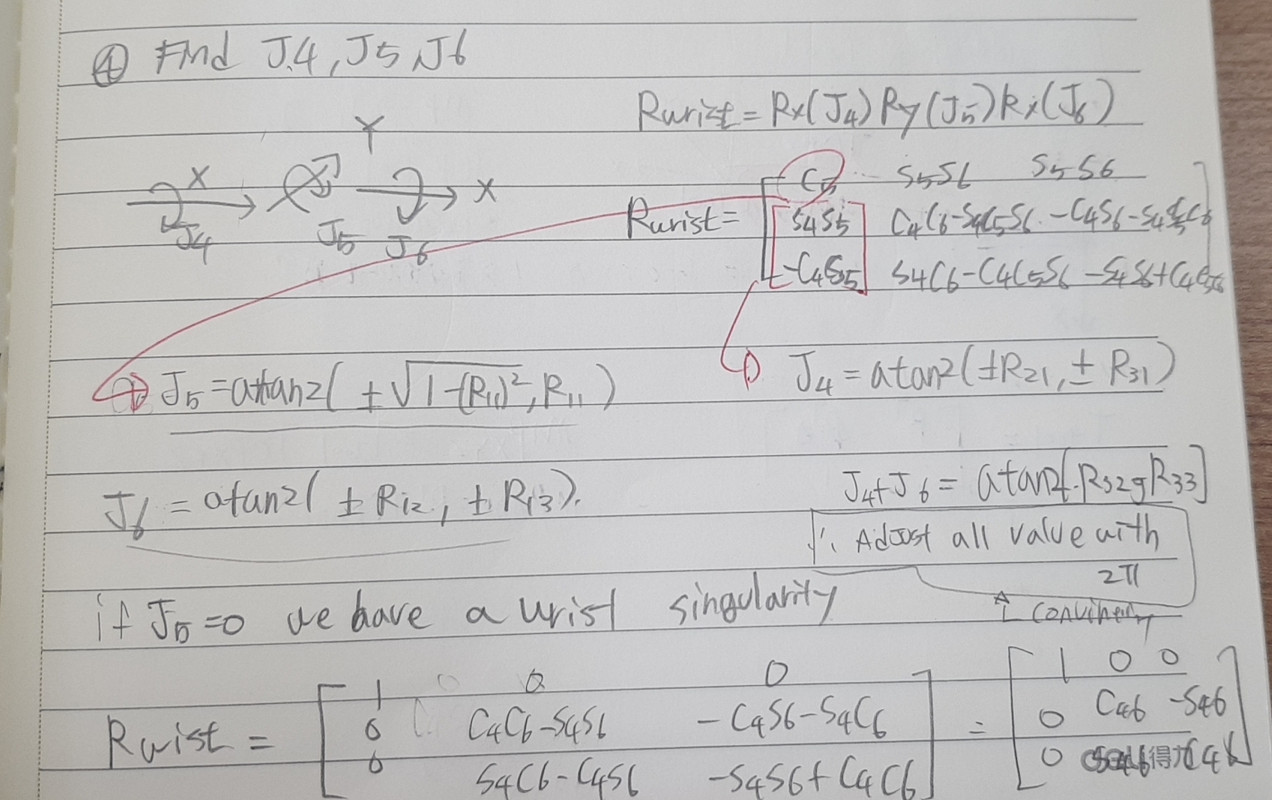 ④ Find J4, J5, J6
Rwrist = Rx(J4) Ry(J5) Rx(J6)
X Y X
J4 J5 J6
Rwrist = [ C5 S5S6 S5S6
S4S5 C4C6-S4C5S6 -C4S6-S4C5C6
-C4S5 S4C6-C4C5S6 -S4S6+C4C5C6 ]
① J5 = atan2( ±√1-(R11)², R11 )
① J4 = atan2(±R21, ± R31)
J6 = atan2( ±R12, ±R13).
J4+J6 = atan2[-R32, R33]
Adjust all value with
2π
if J5=0 we have a wrist singularity
Rwist = [ 1 0 0
0 C4C6-S4S6 -C4S6-S4C6
0 S4C6-C4S6 -S4S6+C4C6 ]
= [ 1 0 0
0 C46 -S46
0 S46 C46 ]